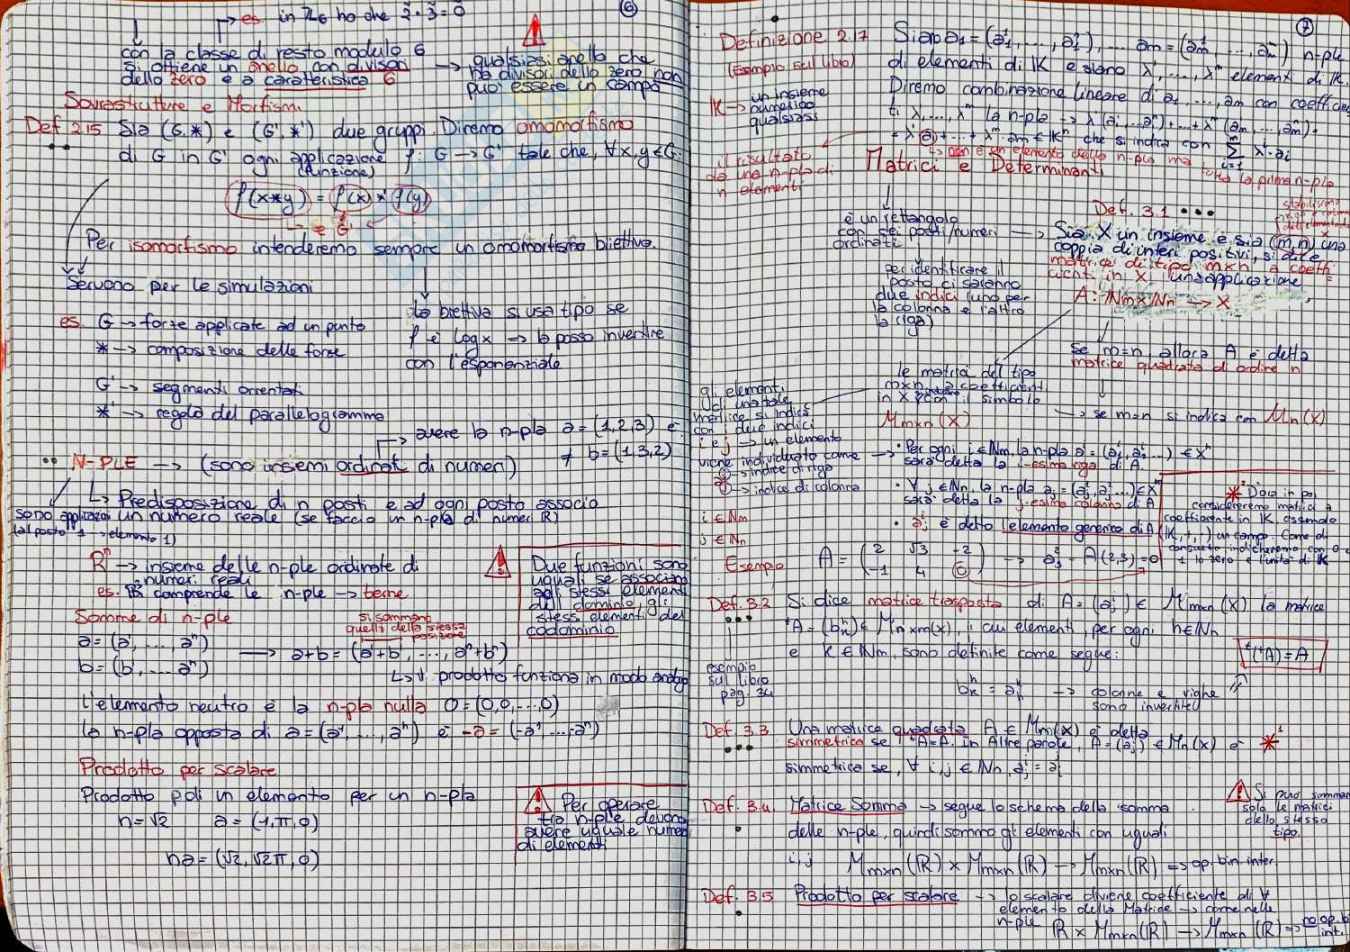 es in Z6 ho che 2̄·3̄=0̄
6
con la classe di resto modulo 6
si ottiene un anello con divisori
dello zero e a caratteristica 6
→ qualsiasi anello che
ha divisori dello zero non
puo' essere un campo
Sovrastrutture e Morfismi
Def 2.15 Sia (G,*) e (G',*') due gruppi. Diremo omomorfismo
di G in G' ogni applicazione f: G → G' tale che, ∀x,y∈G:
(funzione)
f(x*y) = f(x) *' f(y)
↳ ∈ G'
Per isomorfismo intenderemo sempre un omomorfismo biettivo.
Servono per le simulazioni
la biettiva si usa tipo se
f è logx → la posso invertire
con l'esponenziale
es. G → forze applicate ad un punto
* → composizione delle forze
G' → segmenti orientati
*' → regola del parallelogramma
→ avere la n-pla a = (1,2,3) è
≠ b = (1,3,2)
•• N-PLE → (sono insiemi ordinati di numeri)
↳ Predisposizione di n posti e ad ogni posto associo
un numero reale (se faccio un n-pla di numeri R)
sono applicazioni
(al posto 1 → elemento 1)
Rⁿ → insieme delle n-ple ordinate di
numeri reali
es. R³ comprende le n-ple → terne
Due funzioni sono
uguali se associano
agli stessi elementi
del dominio, gli
stessi elementi del
codominio
Somma di n-ple
si sommano
quelli della stessa
posizione
a = (a¹, ..., aⁿ)
b = (b¹, ..., aⁿ)
→ a+b = (a¹+b¹, ..., aⁿ+bⁿ)
↳ il prodotto funziona in modo analogo
l'elemento neutro è la n-pla nulla 0 = (0,0,...,0)
la n-pla opposta di a = (a¹, ..., aⁿ) è -a = (-a¹ ... -aⁿ)
Prodotto per scalare
Prodotto di un elemento per un n-pla
n=√2 a = (1,π,0)
na = (√2, √2π, 0)
Per operare
tra n-ple devono
avere uguale numero
di elementi
7
Definizione 2.17 Siano a1 = (a¹1, ..., aⁿ1), ... am = (a¹m ..., aⁿm) n-ple
(Esempio sul libro) di elementi di K e siano λ¹, ..., λᵐ elementi di K.
K → un insieme
numerico
qualsiasi
Diremo combinazione lineare di a1, ..., am con coefficien
ti λ¹, ..., λᵐ la n-pla → λ¹(a¹1 ... aⁿ1) + ... + λᵐ(a¹m, ..., aⁿm) =
= λ¹a1 + ... + λᵐ am ∈ Kⁿ che si indica con Σ λⁱ·ai
↳ non è un elemento della n-pla ma tutta la prima n-pla
il risultato
da una n-pla di
n elementi
Matrici e Determinanti
è un rettangolo
con sei posti/numeri
ordinati
per identificare il
posto ci saranno
due indici (uno per
la colonna e l'altro
la riga)
Def. 3.1 •••
Sia X un insieme e sia (m,n) una
coppia di interi positivi, si dice
matrice di tipo m×n a coeffi
cienti in X, un'applicazione
A: Nm×Nn → X
Se m=n, allora A è detta
matrice quadrata di ordine n
→ se m=n si indica con Mn(X)
le matrici del tipo
m×n a coefficienti
in X con il simbolo
Mm×n(X)
gli elementi
di una tale
matrice si indica
con i due indici
i e j → un elemento
viene individuato come
i → indice di riga
j → indice di colonna
i ∈ Nm
j ∈ Nn
• Per ogni i∈Nm, la n-pla aⁱ = (aⁱ1, aⁱ2, ...) ∈ Xⁿ
sarà detta la i-esima riga di A.
• ∀ j∈Nn, la n-pla aj = (a¹j, a²j ...) ∈ Xᵐ
sarà detta la j-esima colonna di A
• aⁱj è detto l'elemento generico di A
*¹ D'ora in poi
considereremo matrici a
coefficiente in K, essendo
(K,+,·) un campo. Come di
consueto indicheremo con 0 e
1 lo zero e l'unità di K
Esempio A = (2 √3 -2
-1 4 0) → a²3 = A(2,3) = 0
Def. 3.2 Si dice matrice trasposta di A = (aⁱj) ∈ Mm×n(X) la matrice
•••
ᵗA = (bʰk) ∈ Mn×m(X), i cui elementi, per ogni h∈Nn
e K∈Nm, sono definite come segue:
ᵗ(ᵗA) = A
esempio
sul libro
pag. 34
bʰk = aᵏh → colonne e righe
sono invertite
Def. 3.3 Una matrice quadrata A ∈ Mn(X) è detta
••• simmetrica se ᵗA=A. in Altre parole, A = (aⁱj) ∈ Mn(X) è *¹
simmetrica se, ∀ i,j ∈ Nn, aⁱj = aʲi
Def. 3.4. Matrice Somma → segue lo schema della somma
•
delle n-ple, quindi sommo gli elementi con uguali
i,j Mm×n(R) × Mm×n(R) → Mm×n(R) → op. bin. inter.
Si puo' sommare
solo le matrici
dello stesso
tipo.
Def. 3.5 Prodotto per scalare → lo scalare diviene coefficiente di ∀
•
elemento della Matrice → come nelle
n-ple R × Mm×n(R) → Mm×n(R) → no op. b
int.